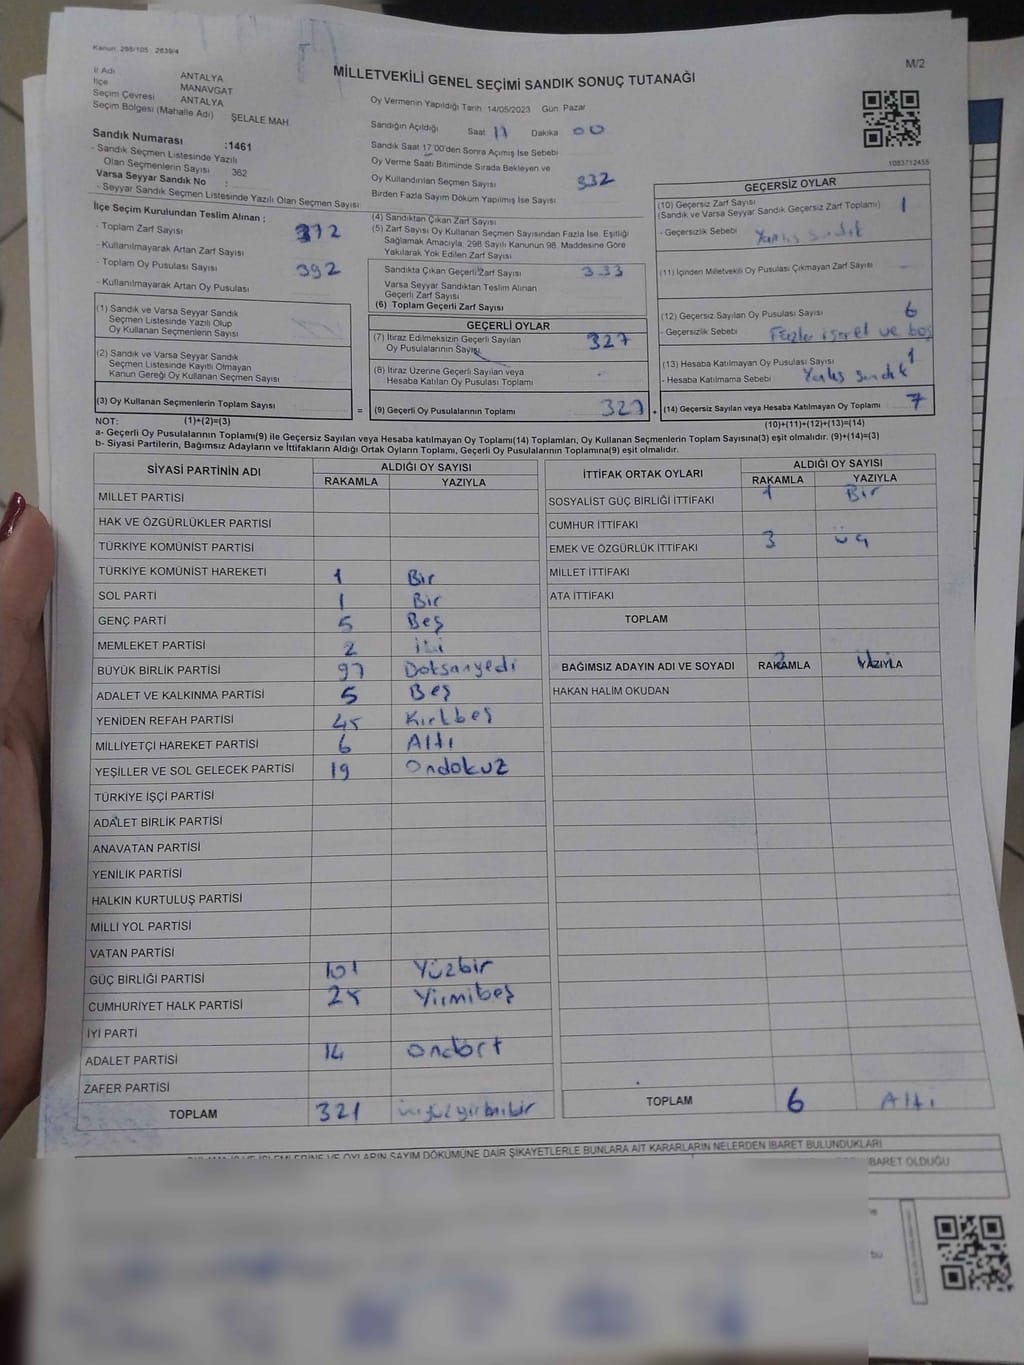 Kanun: 298/105 2839/4
M/2
MİLLETVEKİLİ GENEL SEÇİMİ SANDIK SONUÇ TUTANAĞI
İl Adı ANTALYA
İlçe MANAVGAT
Seçim Çevresi ANTALYA
Seçim Bölgesi (Mahalle Adı) : ŞELALE MAH.
Sandık Numarası :1461
- Sandık Seçmen Listesinde Yazılı
Olan Seçmenlerin Sayısı 362
Varsa Seyyar Sandık No :
- Seyyar Sandık Seçmen Listesinde Yazılı Olan Seçmen Sayısı:
Oy Vermenin Yapıldığı Tarih :14/05/2023 Gün Pazar
Sandığın Açıldığı Saat 17 Dakika 00
Sandık Saat 17:00'den Sonra Açımış İse Sebebi
Oy Verme Saati Bitiminde Sırada Bekleyen ve
Oy Kullandırılan Seçmen Sayısı 332
Birden Fazla Sayım Döküm Yapılmış İse Sayısı
1083712455
İlçe Seçim Kurulundan Teslim Alınan ;
- Toplam Zarf Sayısı 372
- Kullanılmayarak Artan Zarf Sayısı
- Toplam Oy Pusulası Sayısı 392
- Kullanılmayarak Artan Oy Pusulası
(1) Sandık ve Varsa Seyyar Sandık
Seçmen Listesinde Yazılı Olup
Oy Kullanan Seçmenlerin Sayısı
(2) Sandık ve Varsa Seyyar Sandık
Seçmen Listesinde Kayıtlı Olmayan
Kanun Gereği Oy Kullanan Seçmen Sayısı
(3) Oy Kullanan Seçmenlerin Toplam Sayısı
(1)+(2)=(3)
(4) Sandıktan Çıkan Zarf Sayısı
(5) Zarf Sayısı Oy Kullanan Seçmen Sayısından Fazla İse, Eşitliği
Sağlamak Amacıyla, 298 Sayılı Kanunun 98. Maddesine Göre
Yakılarak Yok Edilen Zarf Sayısı
Sandıkta Çıkan Geçerli Zarf Sayısı 333
Varsa Seyyar Sandıktan Teslim Alınan
Geçerli Zarf Sayısı
(6) Toplam Geçerli Zarf Sayısı
GEÇERLİ OYLAR
(7) İtiraz Edilmeksizin Geçerli Sayılan
Oy Pusulalarının Sayısı 327
(8) İtiraz Üzerine Geçerli Sayılan veya
Hesaba Katılan Oy Pusulası Toplamı -
= (9) Geçerli Oy Pusulalarının Toplamı 327 +
GEÇERSİZ OYLAR
(10) Geçersiz Zarf Sayısı
(Sandık ve Varsa Seyyar Sandık Geçersiz Zarf Toplamı) 1
- Geçersizlik Sebebi Yanlış sandık
(11) İçinden Milletvekili Oy Pusulası Çıkmayan Zarf Sayısı
(12) Geçersiz Sayılan Oy Pusulası Sayısı 6
- Geçersizlik Sebebi Fazla işaret ve boş
(13) Hesaba Katılmayan Oy Pusulası Sayısı 1
- Hesaba Katılmama Sebebi Yanlış sandık
(14) Geçersiz Sayılan veya Hesaba Katılmayan Oy Toplamı 7
(10)+(11)+(12)+(13)=(14)
NOT:
a- Geçerli Oy Pusulalarının Toplamı(9) ile Geçersiz Sayılan veya Hesaba katılmayan Oy Toplamı(14) Toplamları, Oy Kullanan Seçmenlerin Toplam Sayısına(3) eşit olmalıdır. (9)+(14)=(3)
b- Siyasi Partilerin, Bağımsız Adayların ve İttifakların Aldığı Ortak Oyların Toplamı, Geçerli Oy Pusulalarının Toplamına(9) eşit olmalıdır.
SİYASİ PARTİNİN ADI ALDIĞI OY SAYISI
RAKAMLA YAZIYLA
MİLLET PARTİSİ
HAK VE ÖZGÜRLÜKLER PARTİSİ
TÜRKİYE KOMÜNİST PARTİSİ
TÜRKİYE KOMÜNİST HAREKETİ 1 Bir
SOL PARTİ 1 Bir
GENÇ PARTİ 5 Beş
MEMLEKET PARTİSİ 2 İki
BÜYÜK BİRLİK PARTİSİ 97 Doksanyedi
ADALET VE KALKINMA PARTİSİ 5 Beş
YENİDEN REFAH PARTİSİ 45 Kırkbeş
MİLLİYETÇİ HAREKET PARTİSİ 6 Altı
YEŞİLLER VE SOL GELECEK PARTİSİ 19 Ondokuz
TÜRKİYE İŞÇİ PARTİSİ
ADALET BİRLİK PARTİSİ
ANAVATAN PARTİSİ
YENİLİK PARTİSİ
HALKIN KURTULUŞ PARTİSİ
MİLLİ YOL PARTİSİ
VATAN PARTİSİ
GÜÇ BİRLİĞİ PARTİSİ 101 Yüzbir
CUMHURİYET HALK PARTİSİ 25 Yirmibeş
İYİ PARTİ
ADALET PARTİSİ 14 Ondört
ZAFER PARTİSİ
TOPLAM 321 üçyüzyirmibir
İTTİFAK ORTAK OYLARI ALDIĞI OY SAYISI
RAKAMLA YAZIYLA
SOSYALİST GÜÇ BİRLİĞİ İTTİFAKI 1 Bir
CUMHUR İTTİFAKI
EMEK VE ÖZGÜRLÜK İTTİFAKI 3 üç
MİLLET İTTİFAKI
ATA İTTİFAKI
TOPLAM
BAĞIMSIZ ADAYIN ADI VE SOYADI RAKAMLA YAZIYLA
HAKAN HALİM OKUDAN
TOPLAM 6 Altı
OYLARIN SAYIM DÖKÜMÜYLE ŞİKAYETLERLE BUNLARA AİT KARARLARIN NELERDEN İBARET BULUNDUKLARI
İBARET OLDUĞU